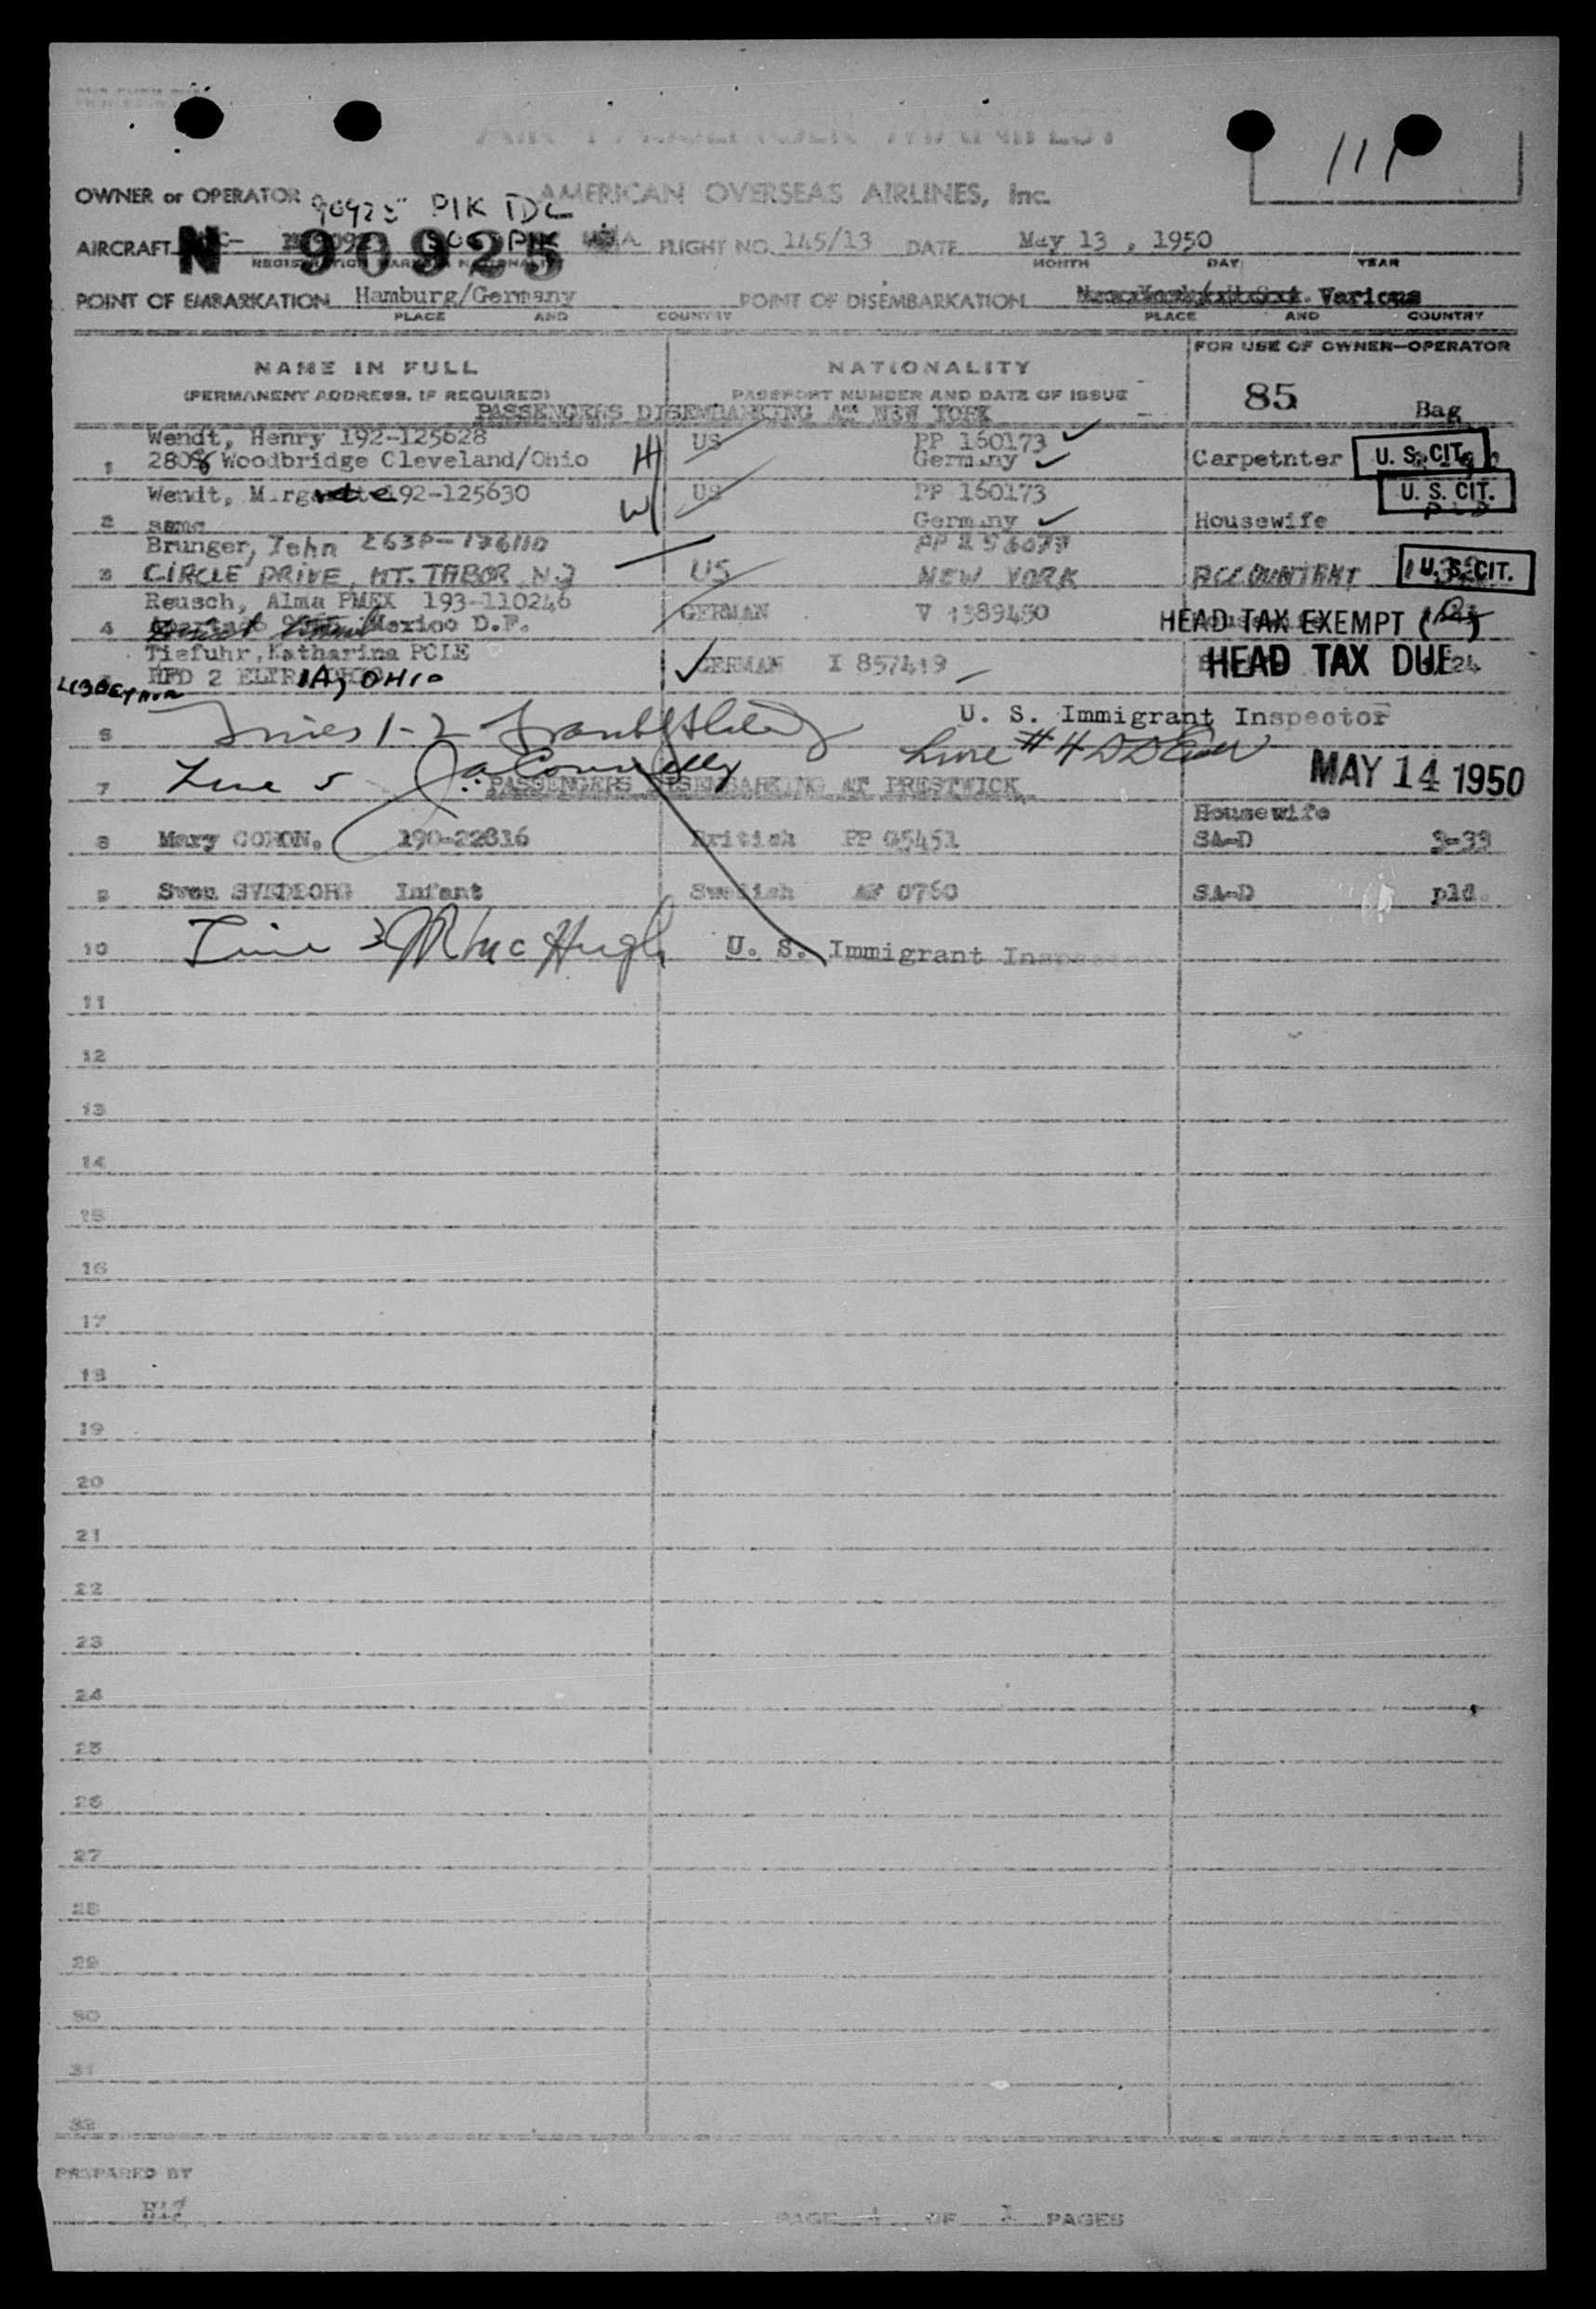 AIR PASSENGER MANIFEST
111
OWNER or OPERATOR AMERICAN OVERSEAS AIRLINES, Inc.
90925 PIK IDL
AIRCRAFT N 90925 FLIGHT NO. 145/13 DATE May 13 , 1950
REGISTRATION MARKS NATIONALITY MONTH DAY YEAR
POINT OF EMBARKATION Hamburg/Germany POINT OF DISEMBARKATION Various
PLACE AND COUNTRY PLACE AND COUNTRY
FOR USE OF OWNER-OPERATOR
NAME IN FULL NATIONALITY
(PERMANENT ADDRESS, IF REQUIRED) PASSPORT NUMBER AND DATE OF ISSUE 85 Bag
PASSENGERS DISEMBARKING AT NEW YORK
Wendt, Henry 192-125628 US PP 160173
1 2808 Woodbridge Cleveland/Ohio H Germany Carpetnter U. S. CIT.
Wendt, Margarete 192-125630 US PP 160173 U. S. CIT.
2 same W Germany Housewife
Brunger, John
3 CIRCLE DRIVE, MT. TABOR N.J US NEW YORK ACCOUNTANT U. S. CIT.
Reusch, Alma PMEX 193-110246
4 Mexico D.F. GERMAN V 1389450 HEAD TAX EXEMPT
Tiefuhr,Katharina POLE
RFD 2 ELYRIA, OHIO GERMAN I 857419 HEAD TAX DUE 24
U. S. Immigrant Inspector
6 Lines 1-2
Line #4
MAY 14 1950
7 Line 5 PASSENGERS DISEMBARKING AT PRESTWICK
Housewife
8 Mary CORON. 190-22816 British PP Q5451 SA-D 3-33
9 Sven SVEDBORG Infant Swedish AF 0760 SA-D pld.
10 Line 3 McHugh U. S. Immigrant Inspector
11
12
13
14
15
16
17
18
19
20
21
22
23
24
25
26
27
28
29
30
31
32
PREPARED BY
PAGE 1 OF 1 PAGES